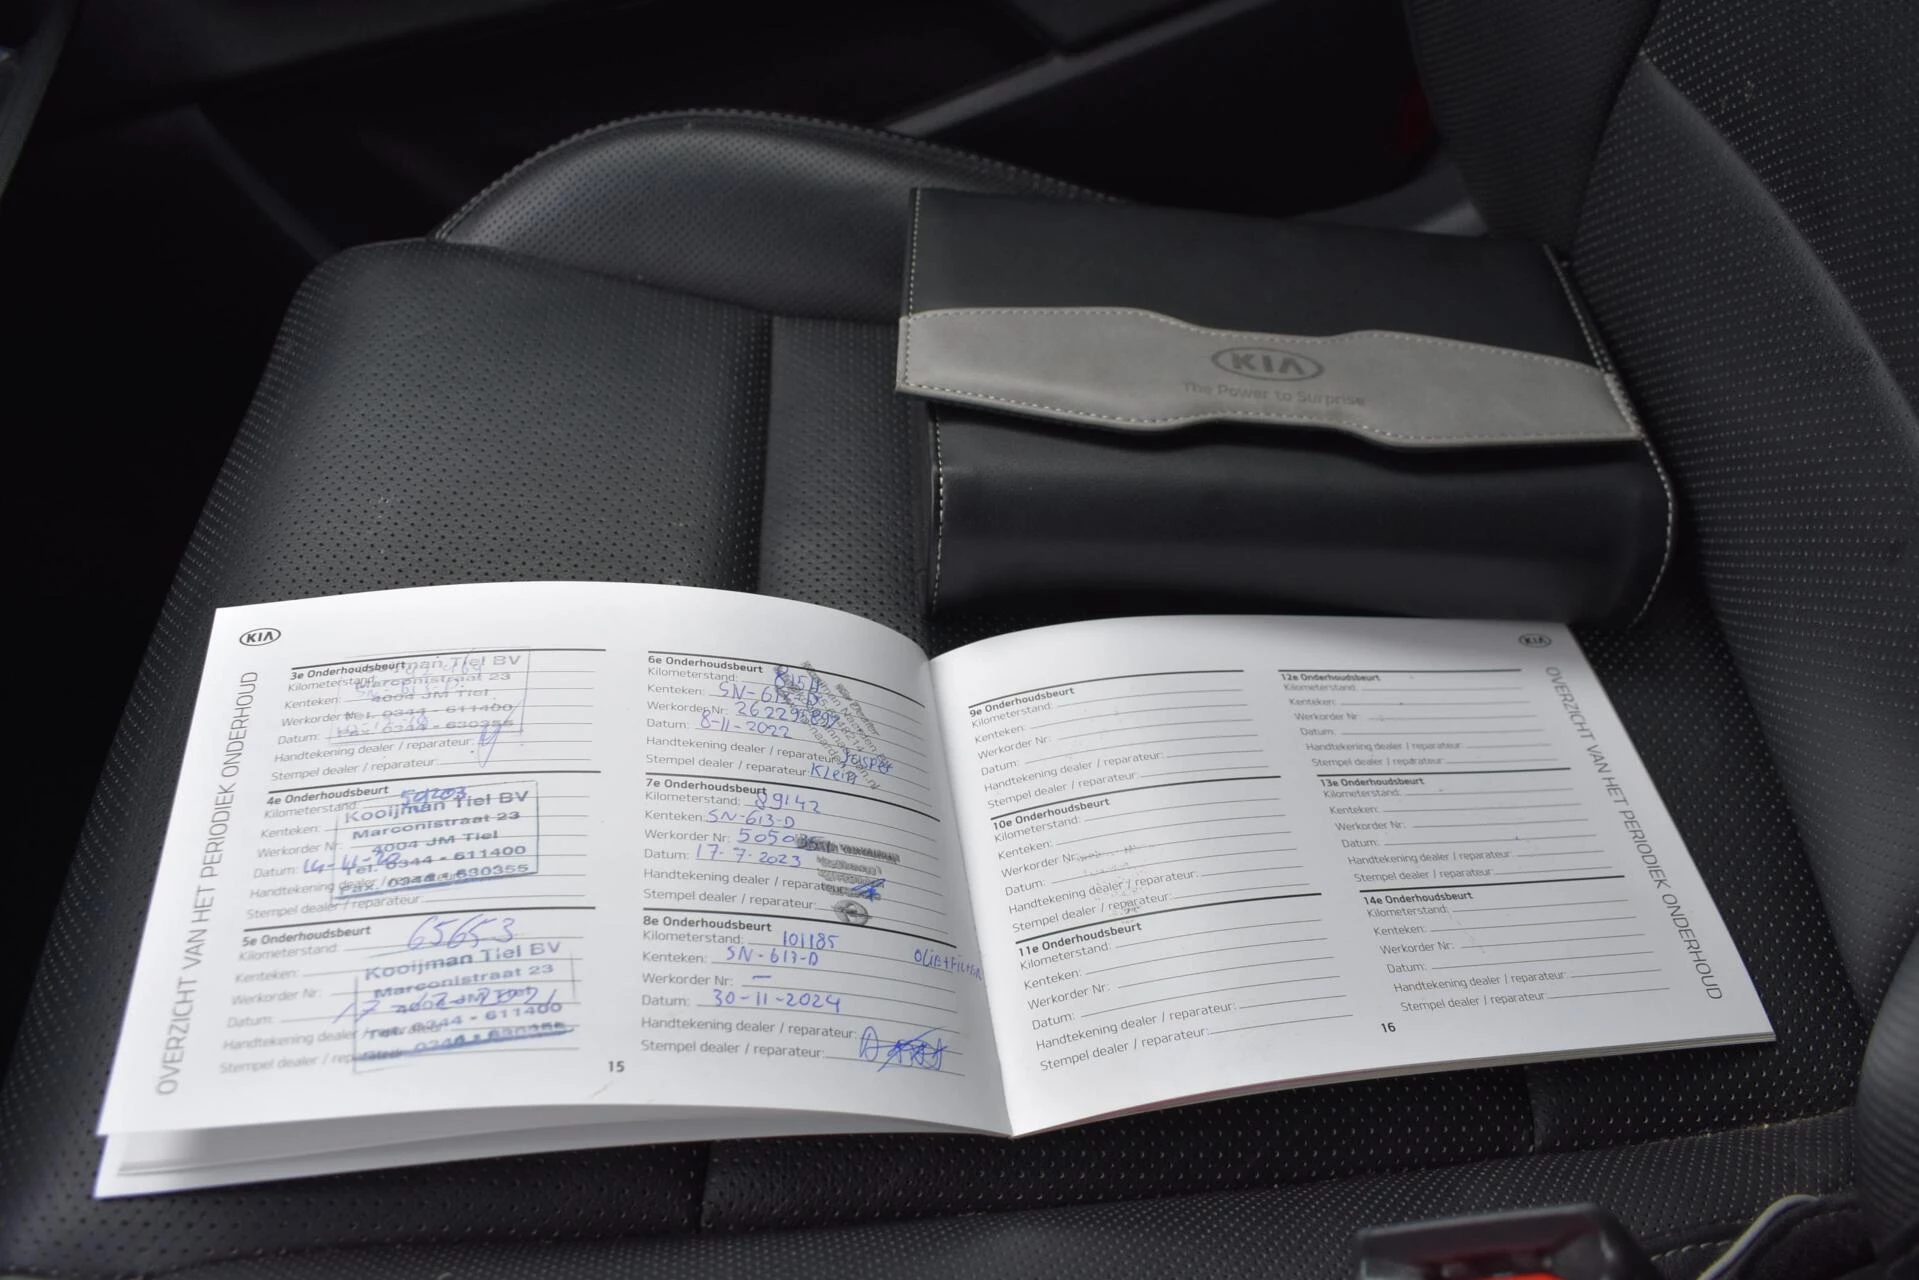 KIA
The Power to Surprise
KIA
OVERZICHT VAN HET PERIODIEK ONDERHOUD
3e Onderhoudsbeurt
Kilometerstand:
Kenteken:
Werkorder Nr:
Datum:
Handtekening dealer / reparateur:
Stempel dealer / reparateur:
Kooijman Tiel BV
Marconistraat 23
4004 JM Tiel
Tel. 0344 - 611400
Fax. 0344 - 630355
4e Onderhoudsbeurt
Kilometerstand:
Kenteken:
Werkorder Nr:
Datum:
Handtekening dealer / reparateur:
Stempel dealer / reparateur:
Kooijman Tiel BV
Marconistraat 23
4004 JM Tiel
Tel. 0344 - 611400
Fax. 0344 - 630355
5e Onderhoudsbeurt
Kilometerstand: 65653
Kenteken:
Werkorder Nr:
Datum:
Handtekening dealer / reparateur:
Stempel dealer / reparateur:
Kooijman Tiel BV
Marconistraat 23
4004 JM Tiel
Tel. 0344 - 611400
Fax. 0344 - 630355
6e Onderhoudsbeurt
Kilometerstand:
Kenteken: SN-613-D
Werkorder Nr:
Datum: 8-11-2022
Handtekening dealer / reparateur: Jesper
Stempel dealer / reparateur: Klein
7e Onderhoudsbeurt
Kilometerstand: 89142
Kenteken: SN-613-D
Werkorder Nr:
Datum: 17-7-2023
Handtekening dealer / reparateur:
Stempel dealer / reparateur:
8e Onderhoudsbeurt
Kilometerstand: 101185
Kenteken: SN-613-D
OLIE+FILTER
Werkorder Nr: —
Datum: 30-11-2024
Handtekening dealer / reparateur:
Stempel dealer / reparateur:
15
KIA
OVERZICHT VAN HET PERIODIEK ONDERHOUD
9e Onderhoudsbeurt
Kilometerstand:
Kenteken:
Werkorder Nr:
Datum:
Handtekening dealer / reparateur:
Stempel dealer / reparateur:
10e Onderhoudsbeurt
Kilometerstand:
Kenteken:
Werkorder Nr:
Datum:
Handtekening dealer / reparateur:
Stempel dealer / reparateur:
11e Onderhoudsbeurt
Kilometerstand:
Kenteken:
Werkorder Nr:
Datum:
Handtekening dealer / reparateur:
Stempel dealer / reparateur:
12e Onderhoudsbeurt
Kilometerstand:
Kenteken:
Werkorder Nr:
Datum:
Handtekening dealer / reparateur:
Stempel dealer / reparateur:
13e Onderhoudsbeurt
Kilometerstand:
Kenteken:
Werkorder Nr:
Datum:
Handtekening dealer / reparateur:
Stempel dealer / reparateur:
14e Onderhoudsbeurt
Kilometerstand:
Kenteken:
Werkorder Nr:
Datum:
Handtekening dealer / reparateur:
Stempel dealer / reparateur:
16